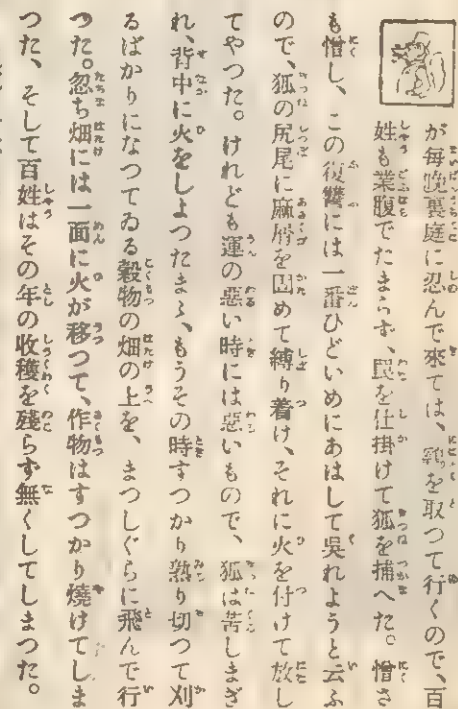 が毎晩裏庭に忍んで來ては、鷄を取つて行くので、百
姓も業腹でたまらず、罠を仕掛けて狐を捕へた。憎さ
も憎し、この復讐には一番ひどいめにあはして呉れようと云ふ
ので、狐の尻尾に麻屑を固めて縛り着け、それに火を付けて放し
てやつた。けれども運の惡い時には惡いもので、狐は苦しまぎ
れ、背中に火をしよつたまゝ、もうその時すつかり熟り切つて刈
るばかりになつてゐる穀物の畑の上を、まつしぐらに飛んで行
つた。忽ち畑には一面に火が移つて、作物はすつかり燒けてしま
つた、そして百姓はその年の收穫を殘らず無くしてしまつた。